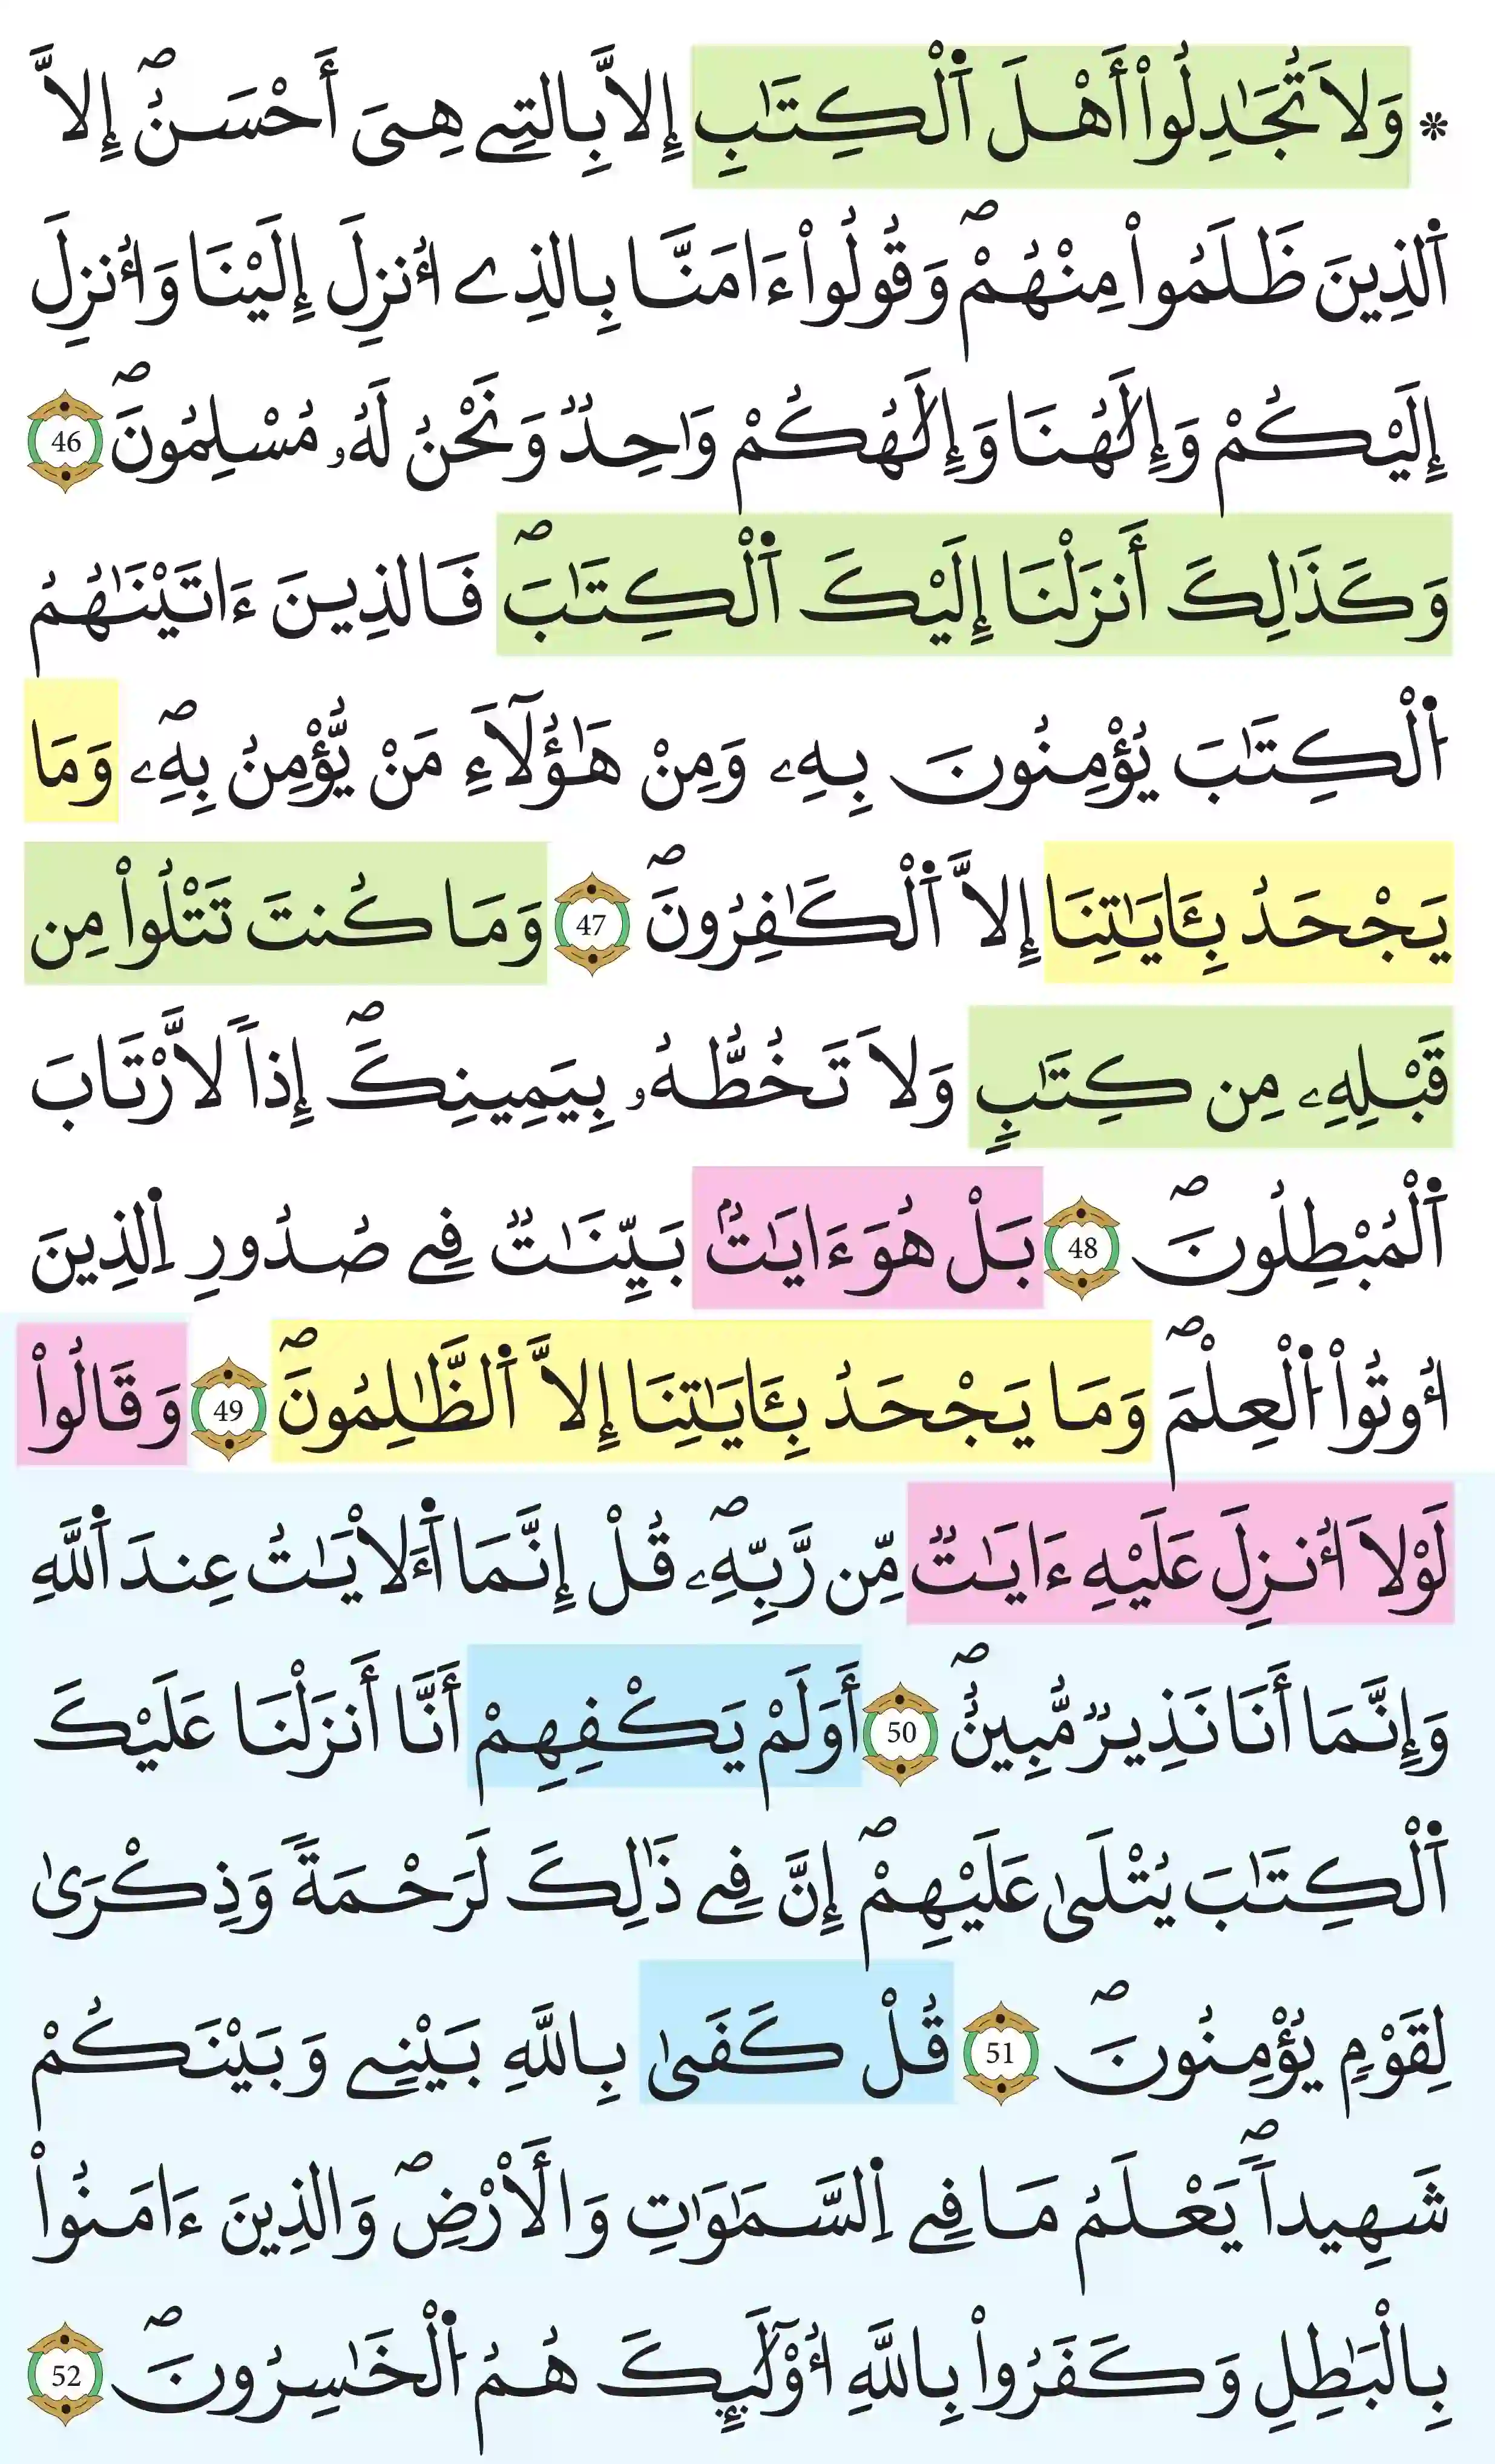 * وَلَا تُجَٰدِلُوٓاْ أَهْلَ ٱلْكِتَٰبِ إِلَّا بِالتِے هِىَ أَحْسَنُۖ إِلَّا
ٱلذِينَ ظَلَمُواْ مِنْهُمْۖ وَقُولُوٓاْ ءَامَنَّا بِالذِے أُنزِلَ إِلَيْنَا وَأُنزِلَ
إِلَيْكُمْ وَإِلَٰهُنَا وَإِلَٰهُكُمْ وَٰحِدٌ وَنَحْنُ لَهُۥ مُسْلِمُونَۖ 46
وَكَذَٰلِكَ أَنزَلْنَا إِلَيْكَ ٱلْكِتَٰبَۖ فَالذِينَ ءَاتَيْنَٰهُمُ
ٱلْكِتَٰبَ يُؤْمِنُونَ بِهِۦ وَمِنْ هَٰٓؤُلَآءِ مَنْ يُّؤْمِنُ بِهِۦۖ وَمَا
يَجْحَدُ بِـَٔايَٰتِنَا إِلَّا ٱلْكَٰفِرُونَۖ 47 وَمَا كُنتَ تَتْلُواْ مِن
قَبْلِهِۦ مِن كِتَٰبٍ وَلَا تَخُطُّهُۥ بِيَمِينِكَۖ إِذاً لَّارْتَابَ
ٱلْمُبْطِلُونَۖ 48 بَلْ هُوَ ءَايَٰتٌۢ بَيِّنَٰتٌ فِے صُدُورِ اِ۬لذِينَ
أُوتُواْ اُ۬لْعِلْمَۖ وَمَا يَجْحَدُ بِـَٔايَٰتِنَا إِلَّا ٱلظَّٰلِمُونَۖ 49 وَقَالُواْ
لَوْلَا أُنزِلَ عَلَيْهِ ءَايَٰتٌ مِّن رَّبِّهِۦۖ قُلْ إِنَّمَا ٱَلْأٓيَٰتُ عِندَ ٱللَّهِ
وَإِنَّمَا أَنَا نَذِيرٌ مُّبِينٌۖ 50 أَوَلَمْ يَكْفِهِمْ أَنَّا أَنزَلْنَا عَلَيْكَ
ٱلْكِتَٰبَ يُتْلَىٰ عَلَيْهِمْۖ إِنَّ فِے ذَٰلِكَ لَرَحْمَةً وَذِكْرَىٰ
لِقَوْمٍ يُؤْمِنُونَۖ 51 قُلْ كَفَىٰ بِاللَّهِ بَيْنِے وَبَيْنَكُمْ
شَهِيداًۖ يَعْلَمُ مَا فِے اِ۬لسَّمَٰوَٰتِ وَالْأَرْضِۖ وَالذِينَ ءَامَنُواْ
بِالْبَٰطِلِ وَكَفَرُواْ بِاللَّهِ أُوْلَٰٓئِكَ هُمُ اُ۬لْخَٰسِرُونَۖ 52